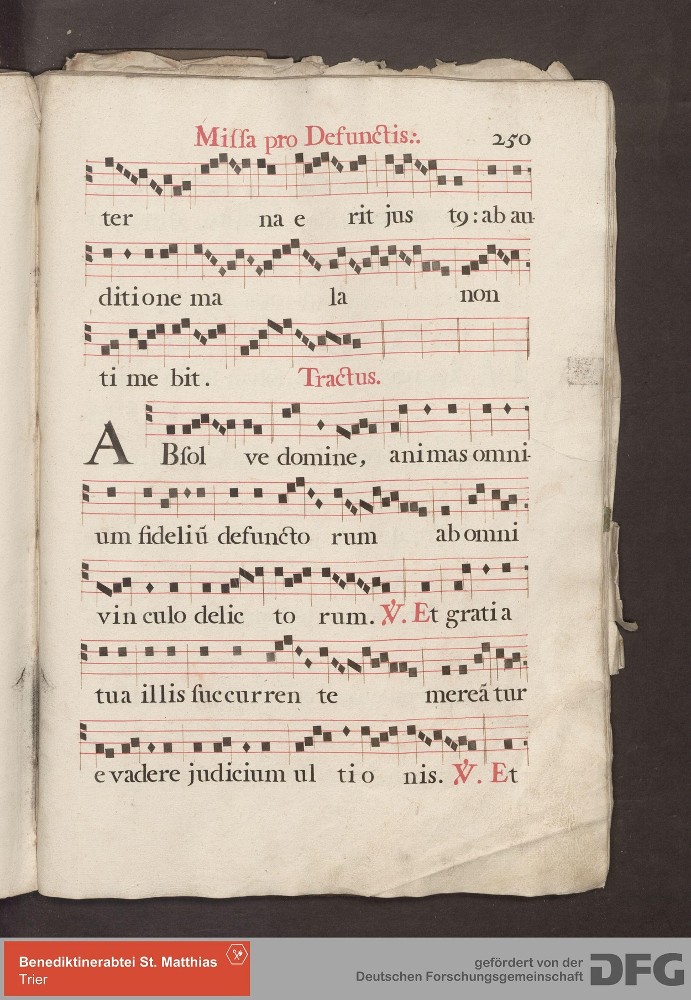 Miſſa pro Defunctis:.
250
ter na e rit jus t9: ab au-
ditione ma la non
ti me bit. Tractus.
A Bſol ve domine, animas omni-
um fideliū defuncto rum ab omni
vin culo delic to rum. ℣. Et gratia
tua illis ſuccurren te mereātur
evadere judicium ul tio nis. ℣. Et
Benediktinerabtei St. Matthias
Trier
gefördert von der
Deutschen Forschungsgemeinschaft
DFG